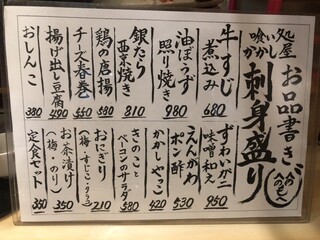 喰い処
かかし屋
お品書き
刺身盛り
牛すじ煮込み 680
油ぼうず照り焼き 980
銀たら西京焼き 810
鶏の唐揚 590
チーズ春巻 550
揚げ出し豆腐 490
おしんこ 380
ずわいがに味噌和え 950
えんがわポン酢 530
かかしやっこ 420
きのことベーコンのサラダ 580
おにぎり(梅・すじこ・うう) 210
お茶漬け(梅・のり) 350
定食セット 350